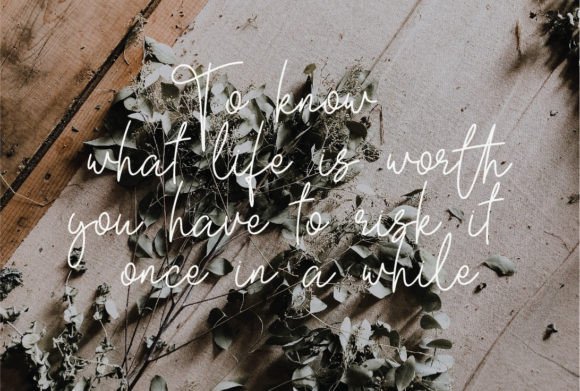 To know
what life is worth
you have to risk it
once in a while